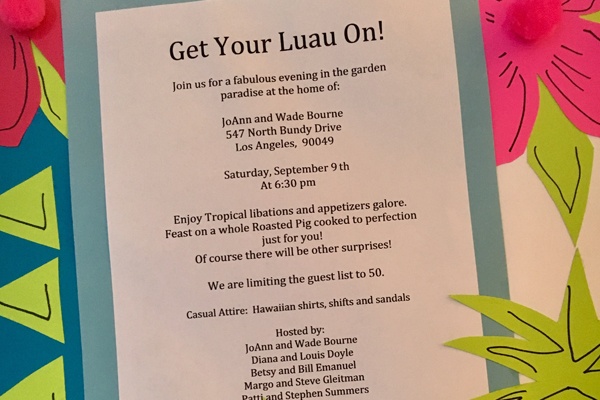 Get Your Luau On!
Join us for a fabulous evening in the garden
paradise at the home of:
JoAnn and Wade Bourne
547 North Bundy Drive
Los Angeles, 90049
Saturday, September 9th
At 6:30 pm
Enjoy Tropical libations and appetizers galore.
Feast on a whole Roasted Pig cooked to perfection
just for you!
Of course there will be other surprises!
We are limiting the guest list to 50.
Casual Attire: Hawaiian shirts, shifts and sandals
Hosted by:
JoAnn and Wade Bourne
Diana and Louis Doyle
Betsy and Bill Emanuel
Margo and Steve Gleitman
Patti and Stephen Summers